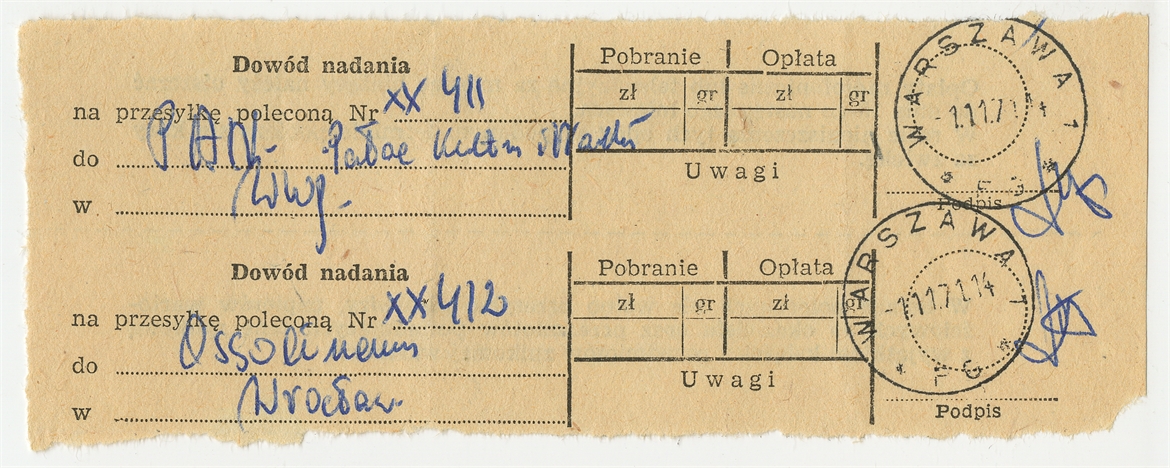 Dowód nadania
na przesyłkę poleconą Nr XX 411
do PAN. Pałac Kultu
w
Pobranie Opłata
zł gr zł gr
Uwagi
Podpis
WARSZAWA 1
-1.11.71.14
* FG *
Dowód nadania
na przesyłkę poleconą Nr XX 412
do Ossolineum
w Wrocław
Pobranie Opłata
zł gr zł gr
Uwagi
Podpis
WARSZAWA 1
-1.11.71.14
* FG *